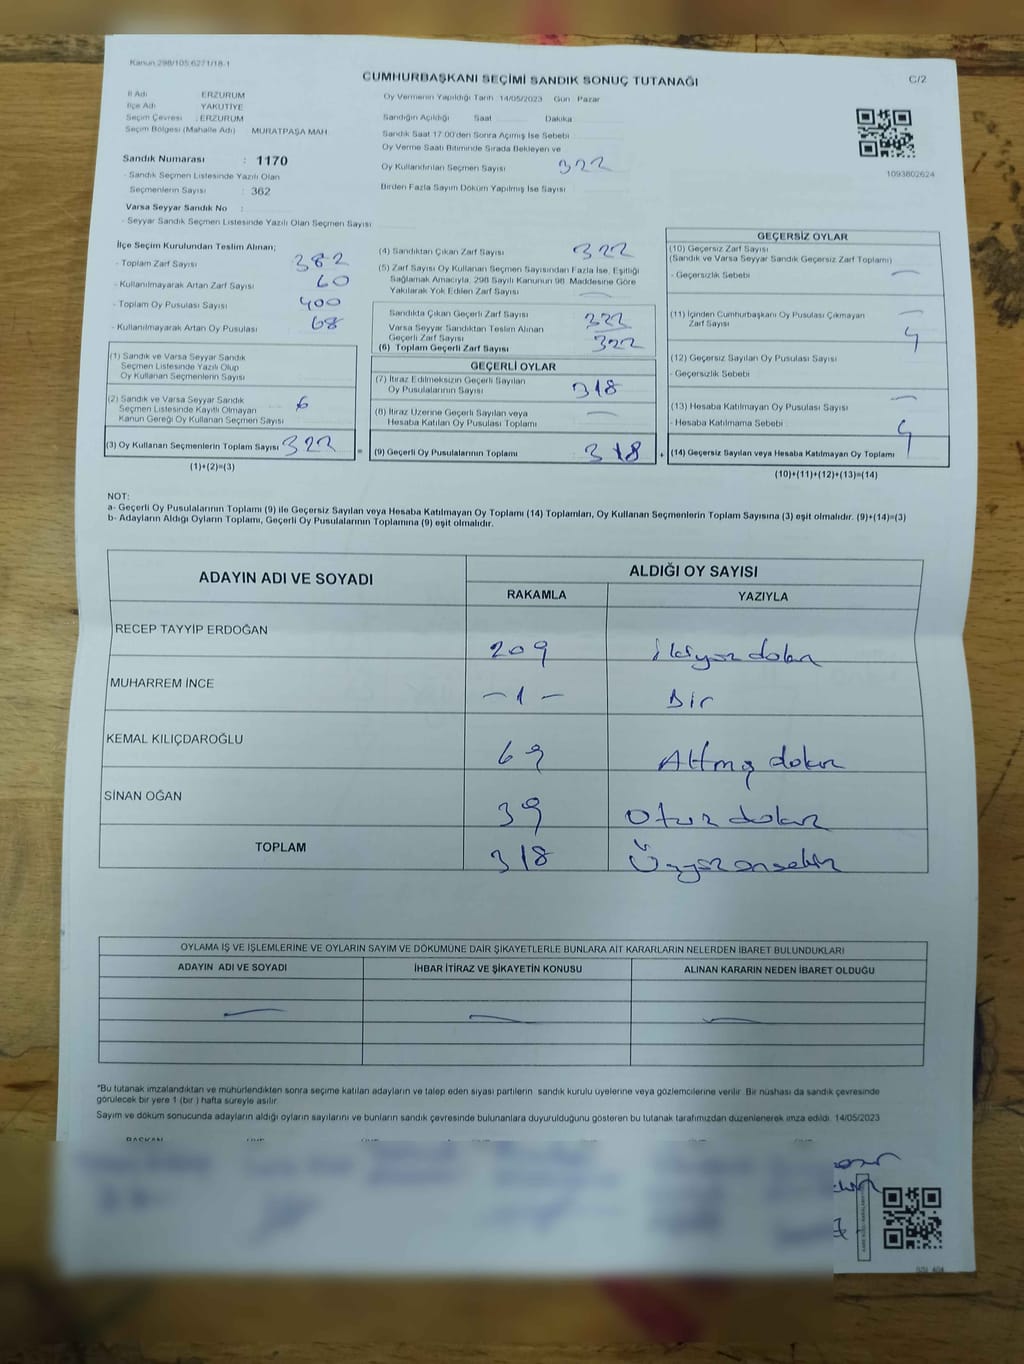 Kanun:298/105;6271/18-1
CUMHURBAŞKANI SEÇİMİ SANDIK SONUÇ TUTANAĞI
C/2
İl Adı ERZURUM
İlçe Adı YAKUTİYE
Seçim Çevresi : ERZURUM
Seçim Bölgesi (Mahalle Adı) MURATPAŞA MAH.
Sandık Numarası : 1170
- Sandık Seçmen Listesinde Yazılı Olan
Seçmenlerin Sayısı : 362
Varsa Seyyar Sandık No :
- Seyyar Sandık Seçmen Listesinde Yazılı Olan Seçmen Sayısı
Oy Vermenin Yapıldığı Tarih 14/05/2023 Gün Pazar
Sandığın Açıldığı Saat Dakika
Sandık Saat 17:00'den Sonra Açımış İse Sebebi
Oy Verme Saati Bitiminde Sırada Bekleyen ve
Oy Kullandırılan Seçmen Sayısı 322
Birden Fazla Sayım Döküm Yapılmış İse Sayısı
1093802624
İlçe Seçim Kurulundan Teslim Alınan;
- Toplam Zarf Sayısı 382
- Kullanılmayarak Artan Zarf Sayısı 60
- Toplam Oy Pusulası Sayısı 400
- Kullanılmayarak Artan Oy Pusulası 68
(1) Sandık ve Varsa Seyyar Sandık
Seçmen Listesinde Yazılı Olup
Oy Kullanan Seçmenlerin Sayısı
(2) Sandık ve Varsa Seyyar Sandık
Seçmen Listesinde Kayıtlı Olmayan
Kanun Gereği Oy Kullanan Seçmen Sayısı 6
(3) Oy Kullanan Seçmenlerin Toplam Sayısı 322 =
(1)+(2)=(3)
(4) Sandıktan Çıkan Zarf Sayısı 322
(5) Zarf Sayısı Oy Kullanan Seçmen Sayısından Fazla İse, Eşitliği
Sağlamak Amacıyla, 298 Sayılı Kanunun 98. Maddesine Göre
Yakılarak Yok Edilen Zarf Sayısı —
Sandıkta Çıkan Geçerli Zarf Sayısı 322
Varsa Seyyar Sandıktan Teslim Alınan
Geçerli Zarf Sayısı
(6) Toplam Geçerli Zarf Sayısı 322
GEÇERLİ OYLAR
(7) İtiraz Edilmeksizin Geçerli Sayılan
Oy Pusulalarının Sayısı 318
(8) İtiraz Üzerine Geçerli Sayılan veya
Hesaba Katılan Oy Pusulası Toplamı —
(9) Geçerli Oy Pusulalarının Toplamı 318 +
GEÇERSİZ OYLAR
(10) Geçersiz Zarf Sayısı
(Sandık ve Varsa Seyyar Sandık Geçersiz Zarf Toplamı)
- Geçersizlik Sebebi —
(11) İçinden Cumhurbaşkanı Oy Pusulası Çıkmayan —
Zarf Sayısı 4
(12) Geçersiz Sayılan Oy Pusulası Sayısı
- Geçersizlik Sebebi
(13) Hesaba Katılmayan Oy Pusulası Sayısı —
- Hesaba Katılmama Sebebi
(14) Geçersiz Sayılan veya Hesaba Katılmayan Oy Toplamı 4
(10)+(11)+(12)+(13)=(14)
NOT:
a- Geçerli Oy Pusulalarının Toplamı (9) ile Geçersiz Sayılan veya Hesaba Katılmayan Oy Toplamı (14) Toplamları, Oy Kullanan Seçmenlerin Toplam Sayısına (3) eşit olmalıdır. (9)+(14)=(3)
b- Adayların Aldığı Oyların Toplamı, Geçerli Oy Pusulalarının Toplamına (9) eşit olmalıdır.
ADAYIN ADI VE SOYADI
ALDIĞI OY SAYISI
RAKAMLA YAZIYLA
RECEP TAYYİP ERDOĞAN 209 İkiyüz dokuz
MUHARREM İNCE -1- Bir
KEMAL KILIÇDAROĞLU 69 Altmış dokuz
SİNAN OĞAN 39 Otuz dokuz
TOPLAM 318 Üçyüz onsekiz
OYLAMA İŞ VE İŞLEMLERİNE VE OYLARIN SAYIM VE DÖKÜMÜNE DAİR ŞİKAYETLERLE BUNLARA AİT KARARLARIN NELERDEN İBARET BULUNDUKLARI
ADAYIN ADI VE SOYADI İHBAR İTİRAZ VE ŞİKAYETİN KONUSU ALINAN KARARIN NEDEN İBARET OLDUĞU
— — —
*Bu tutanak imzalandıktan ve mühürlendikten sonra seçime katılan adayların ve talep eden siyasi partilerin sandık kurulu üyelerine veya gözlemcilerine verilir. Bir nüshası da sandık çevresinde
görülecek bir yere 1 (bir ) hafta süreyle asılır.
Sayım ve döküm sonucunda adayların aldığı oyların sayılarını ve bunların sandık çevresinde bulunanlara duyurulduğunu gösteren bu tutanak tarafımızdan düzenlenerek imza edildi. 14/05/2023
BAŞKAN